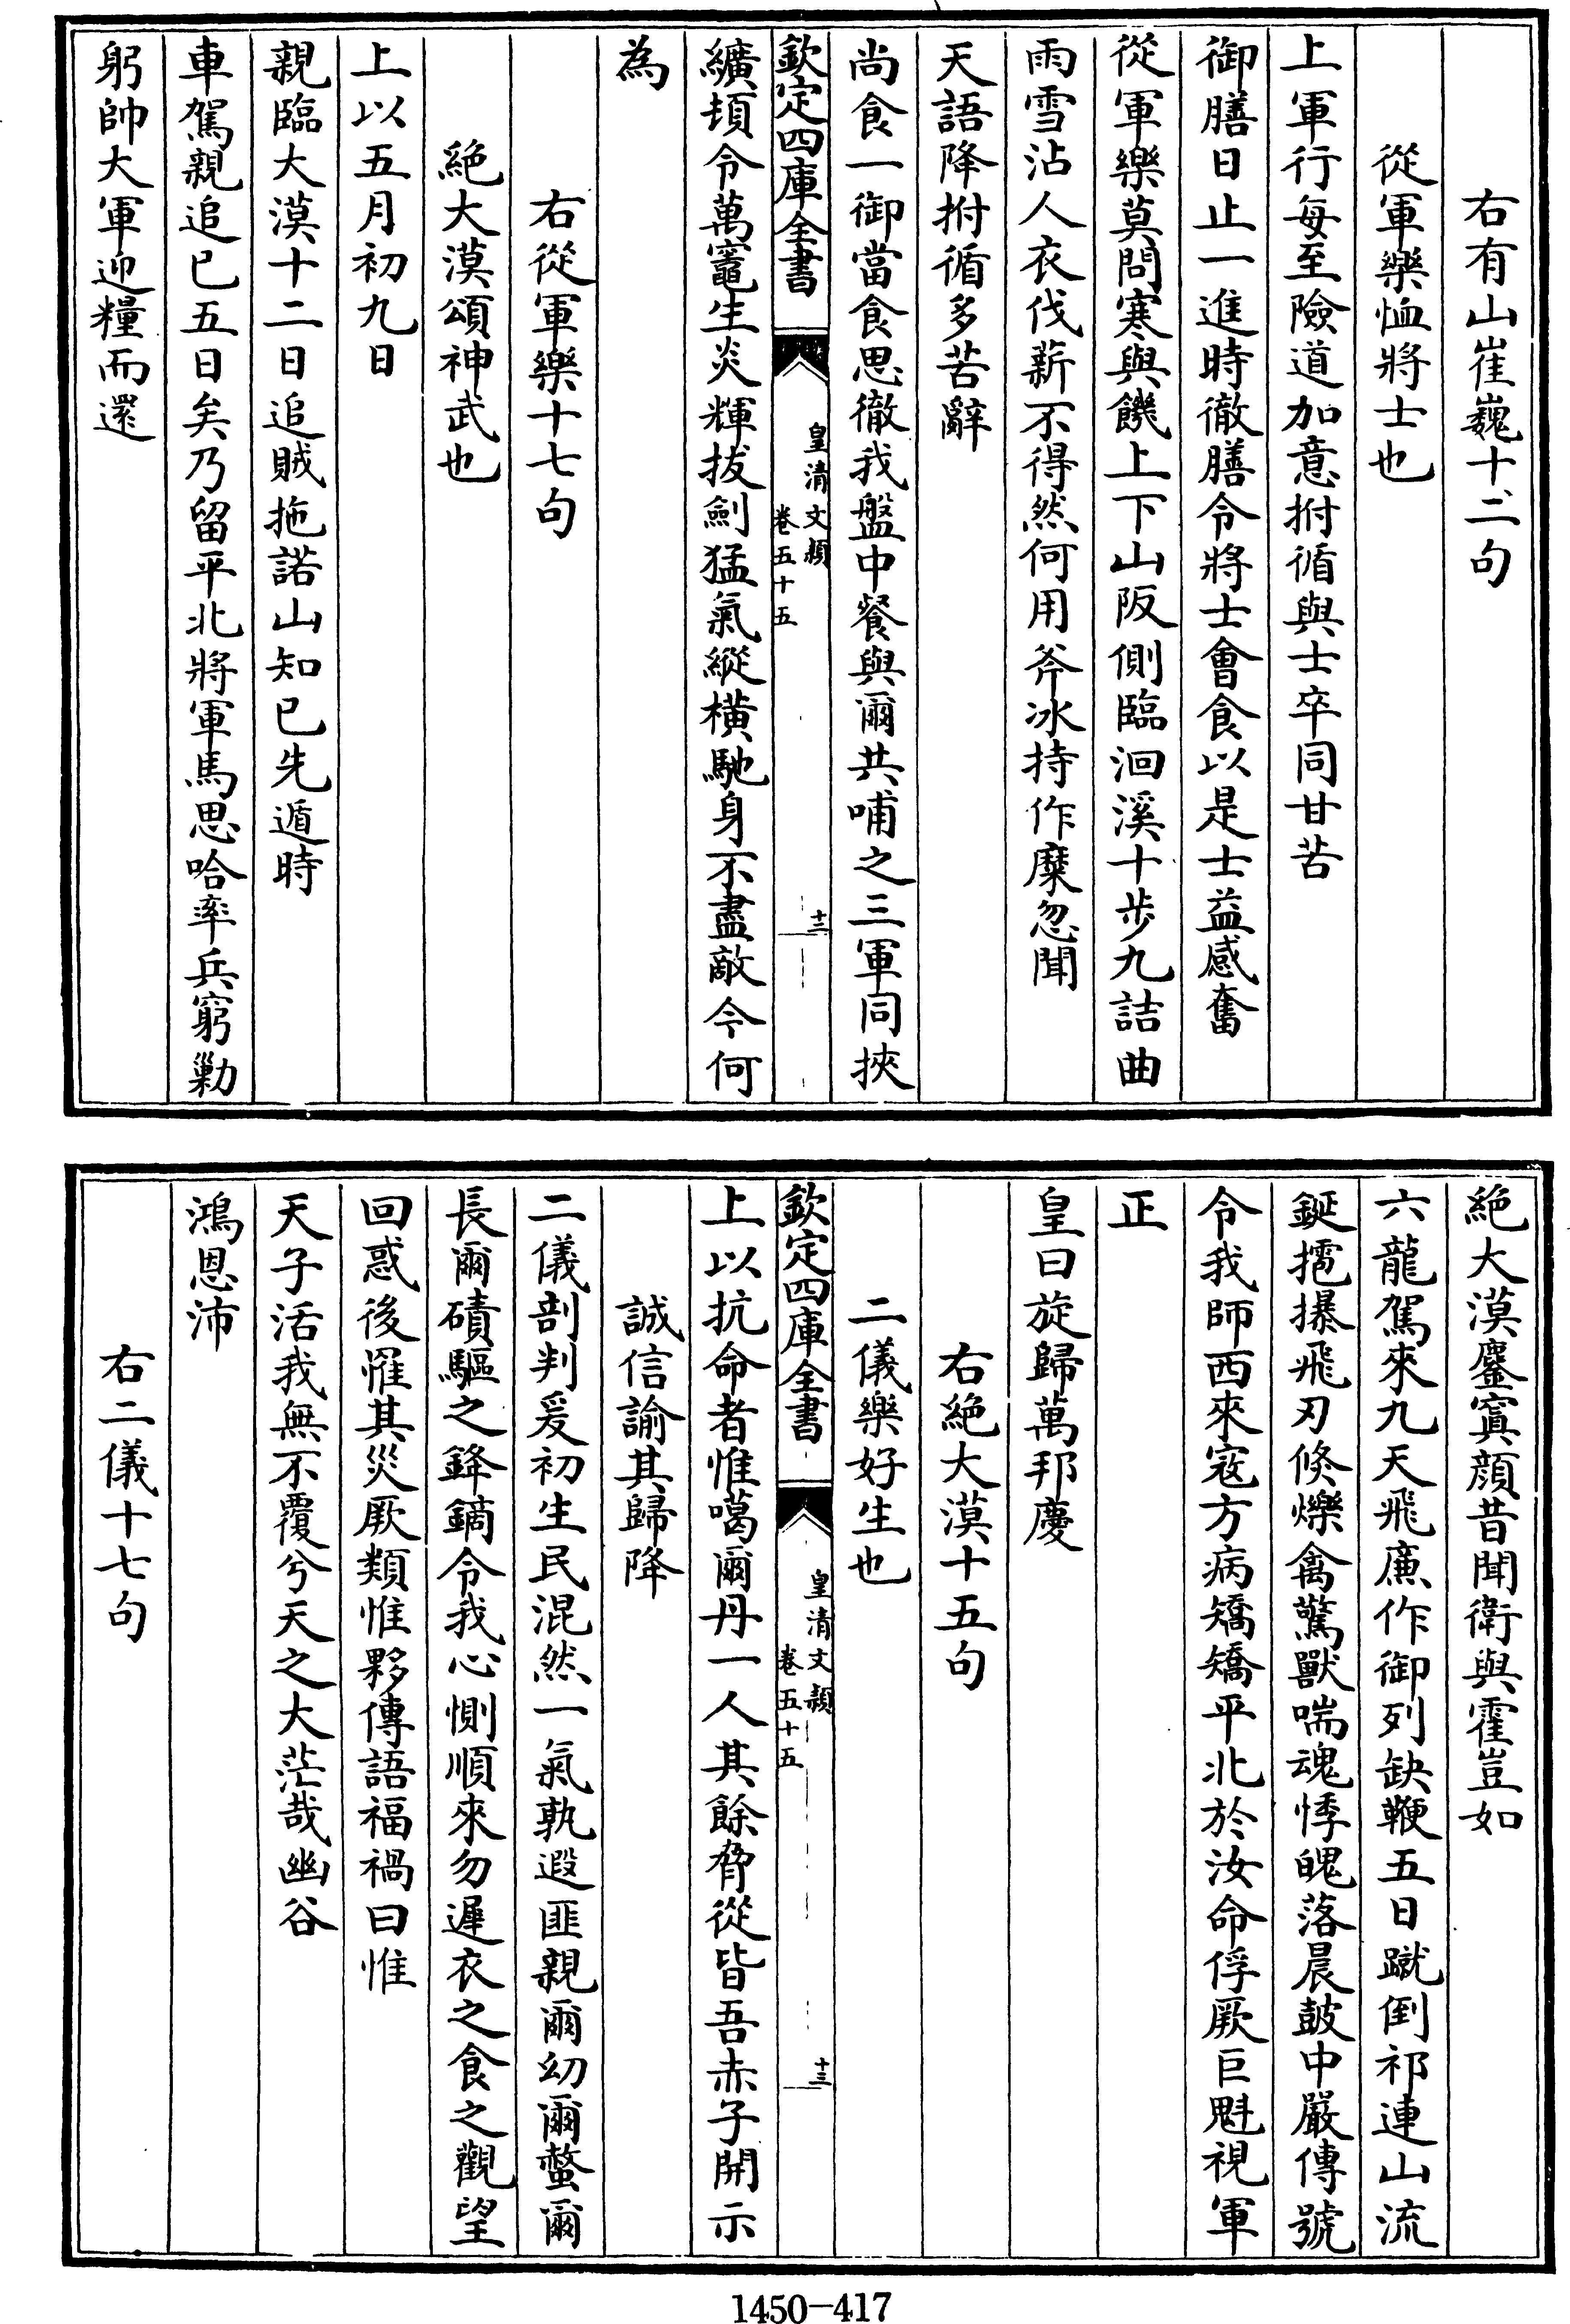 右有山崔巍十二句
從軍樂恤將士也
上軍行每至險道加意拊循與士卒同甘苦
御膳日止一進時徹膳令將士會食以是士益感奮
從軍樂莫問寒與饑上下山阪側臨洄溪十步九詰曲
雨雪沾人衣伐薪不得然何用斧冰持作糜忽聞
天語降拊循多苦辭
尚食一御當食思徹我盤中餐與爾共哺之三軍同挾
欽定四庫全書
皇清文穎
卷五十五
十二
纊頓令萬竈生炎輝拔劍猛氣縱橫馳身不盡敵今何
為
右從軍樂十七句
絕大漠頌神武也
上以五月初九日
親臨大漠十二日追賊拖諾山知已先遁時
車駕親追已五日矣乃留平北將軍馬思哈率兵窮勦
躬帥大軍迎糧而還
絕大漠鏖寘顏昔聞衛與霍豈如
六龍駕來九天飛廉作御列缺鞭五日蹴倒祁連山流
鋋掊𢶉飛刃倏爍禽驚獸喘魂悸魄落晨鼓中嚴傳號
令我師西來寇方病矯矯平北於汝命俘厥巨魁視軍
正
皇曰旋歸萬邦慶
右絕大漠十五句
二儀樂好生也
欽定四庫全書
皇清文穎
卷五十五
十三
上以抗命者惟噶爾丹一人其餘脅從皆吾赤子開示
誠信諭其歸降
二儀剖判爰初生民混然一氣孰遐匪親爾幼爾蟄爾
長爾磧驅之鋒鏑令我心惻順來勿遲衣之食之觀望
回惑後罹其災厥類惟夥傳語福禍曰惟
天子活我無不覆兮天之大茫哉幽谷
鴻恩沛
右二儀十七句
1450—417